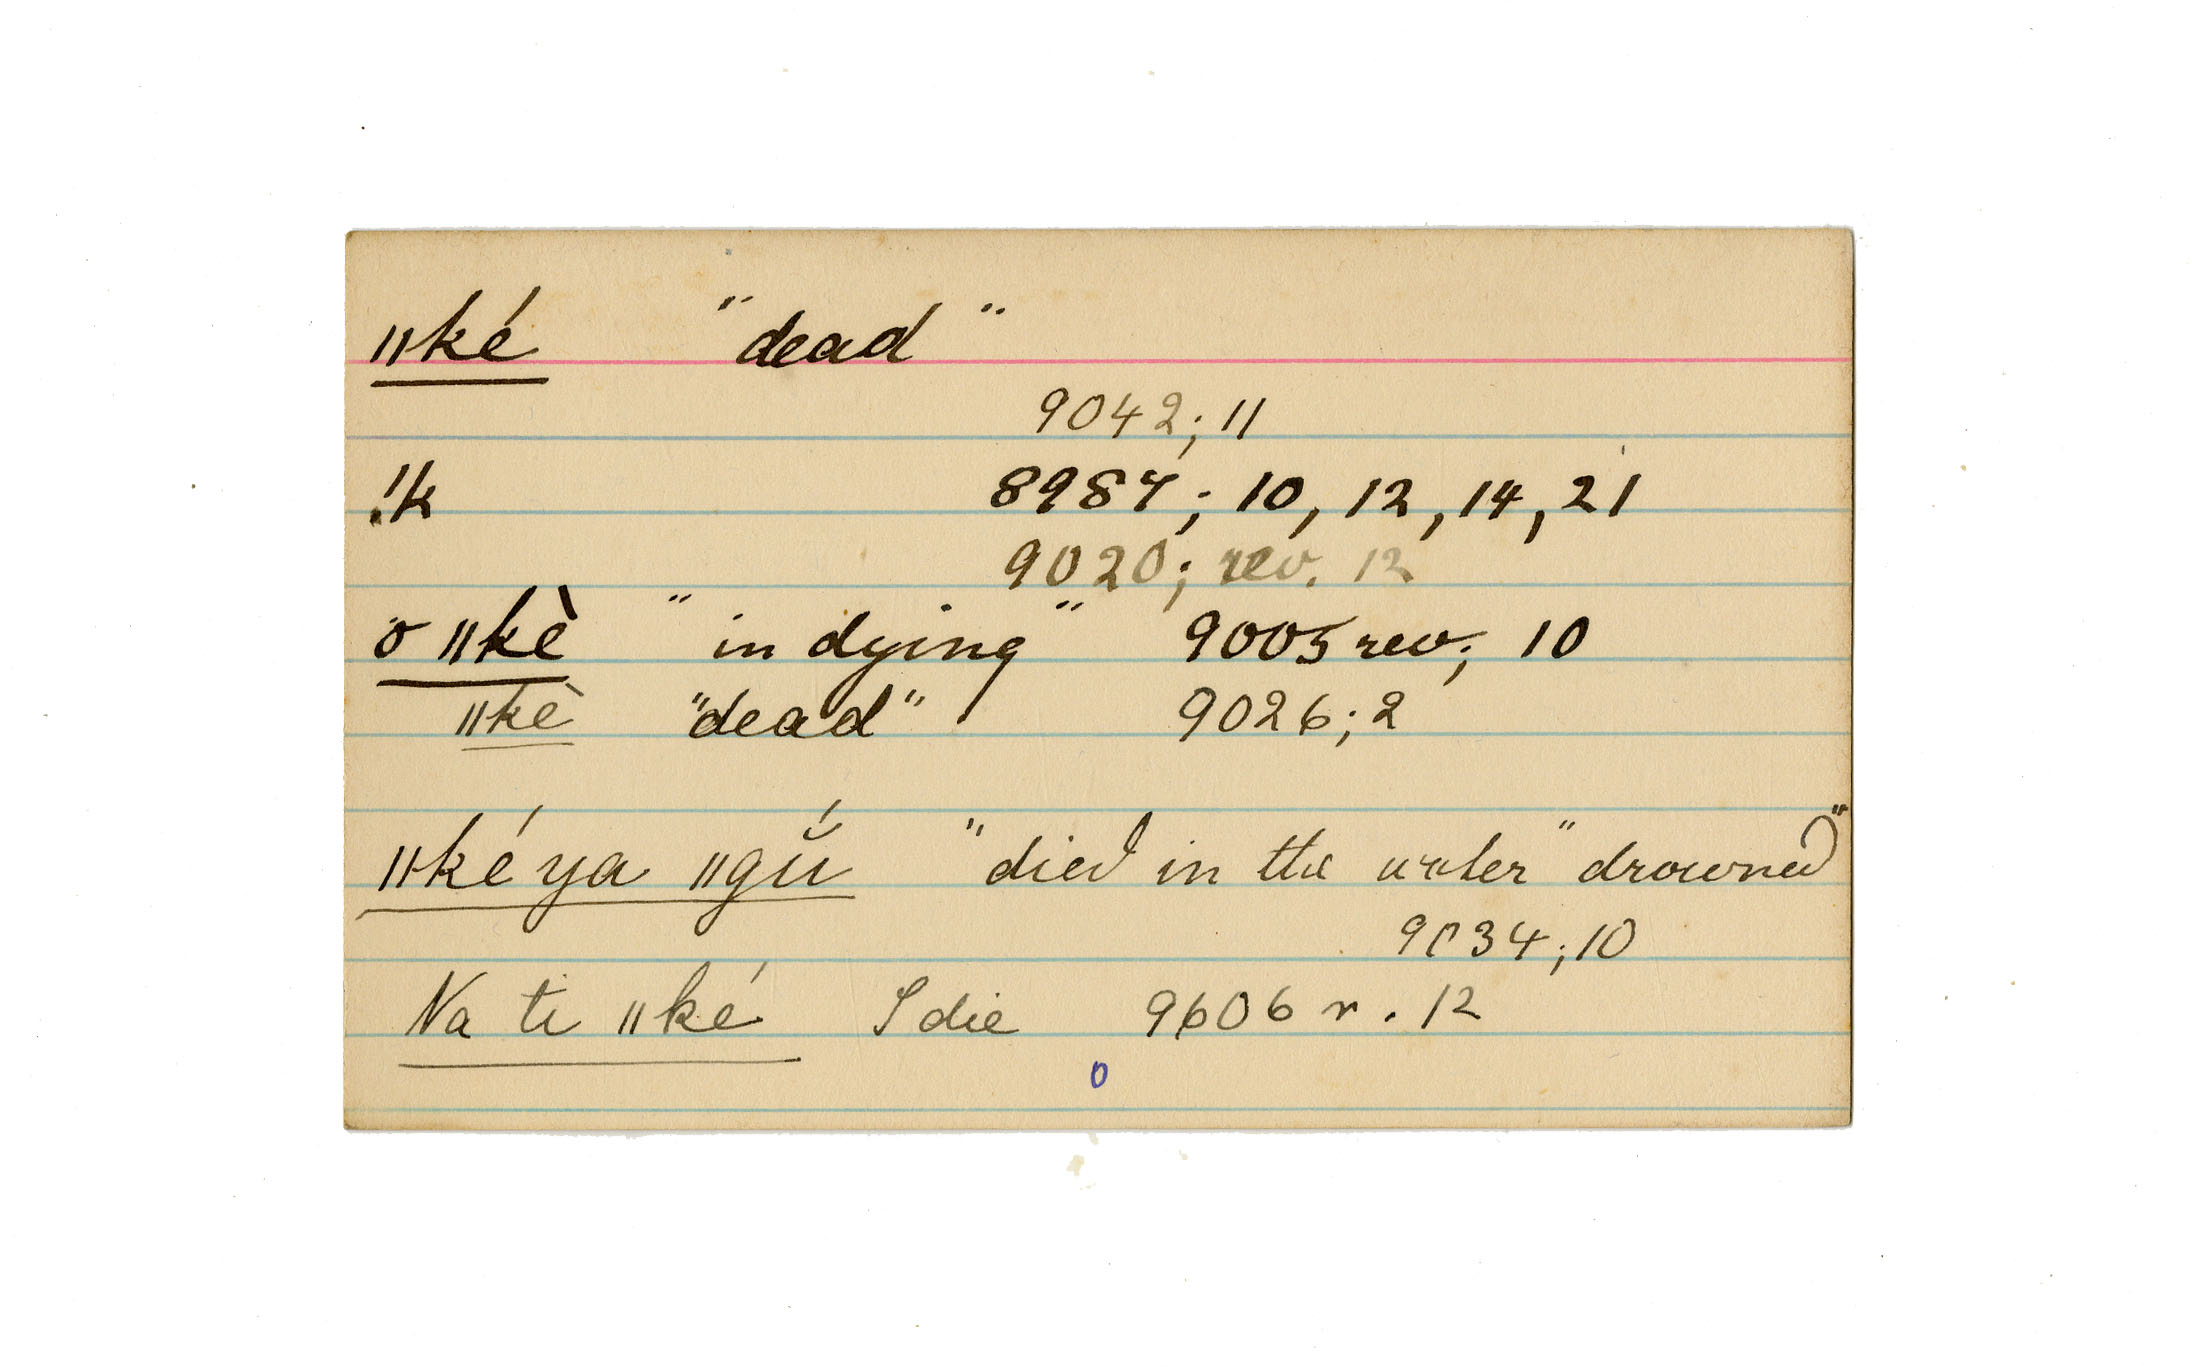 ǁké "dead"
9042; 11
!k 8987; 10, 12, 14, 21
9020; rev. 12
o ǁkè "in dying" 9005 rev; 10
ǁkè "dead" 9026; 2
ǁké ya ǁgŭ́ "died in the water" drowned"
9034; 10
Na ti ǁké I die 9606 r. 12
0